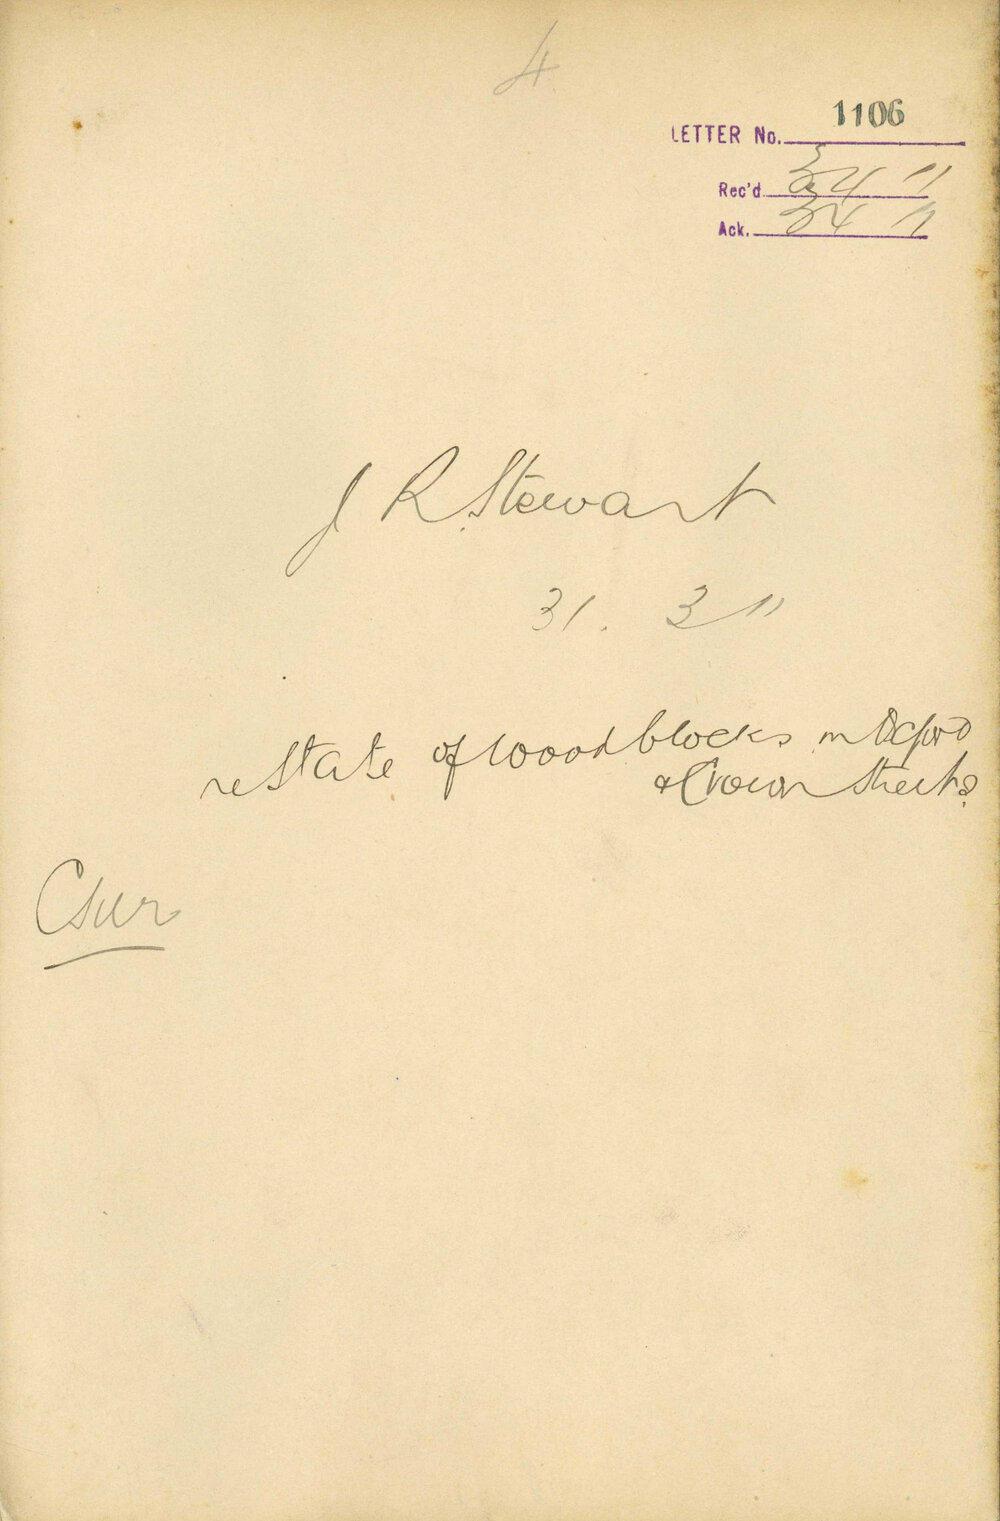 4
LETTER No. 1106
Rec'd 3 4 11
Ack. 3 4 11
J R Stewart
31. 3 11
re state of woodblocks in Oxford
& Crown Streets
CSur